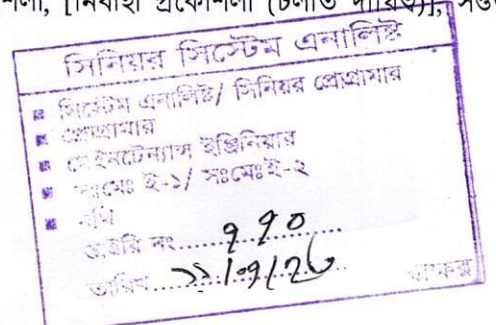 [নির্বাহী প্রকৌশলী (চলতি দায়িত্ব)],
সিনিয়র সিস্টেম এনালিষ্ট
■ সিস্টেম এনালিষ্ট/ সিনিয়র প্রোগ্রামার
■ প্রোগ্রামার
■ মেইনটেন্যান্স ইঞ্জিনিয়ার
■ সঃমেঃ ই-১/ সঃমেঃই-২
■
ডায়রি নং.....৭৭০.....
তারিখ.....
স্বাক্ষর